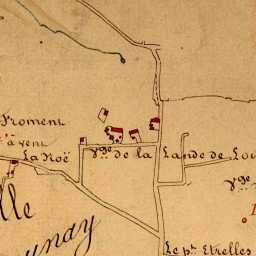 Froment
à vent
La Noë
Vge de la Lande de Lou
Vge
lle
unay
Le pt. Etrelles